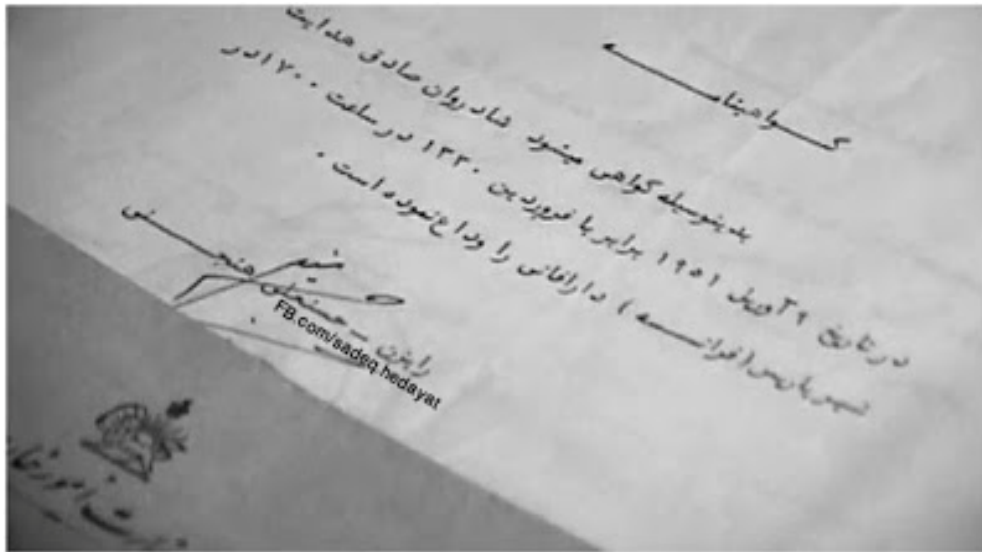 گـــواهینامـــه
بدینوسیله گواهی میشود شادروان صادق هدایت
در تاریخ ۹ آوریل ۱۹۵۱ برابر با فروردین ۱۳۳۰ در ساعت ۱۷۰۰ در
شهر پاریس (فرانـــسه) دارفانی را وداع نموده است.
رایزن ـ حسنعلی
FB.com/sadeq.hedayat